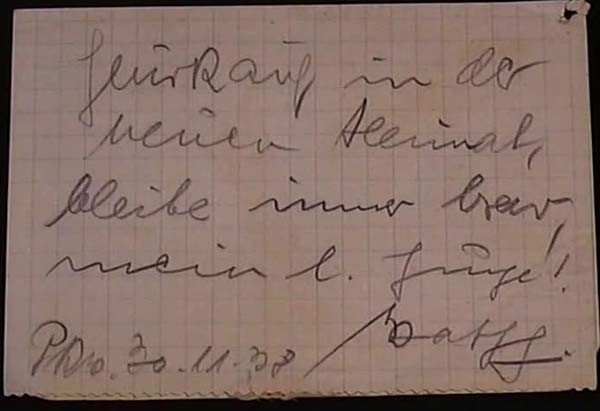 Glückauf in der
neuen Heimat,
bleibe immer brav,
mein l. Junge!
30.11.38